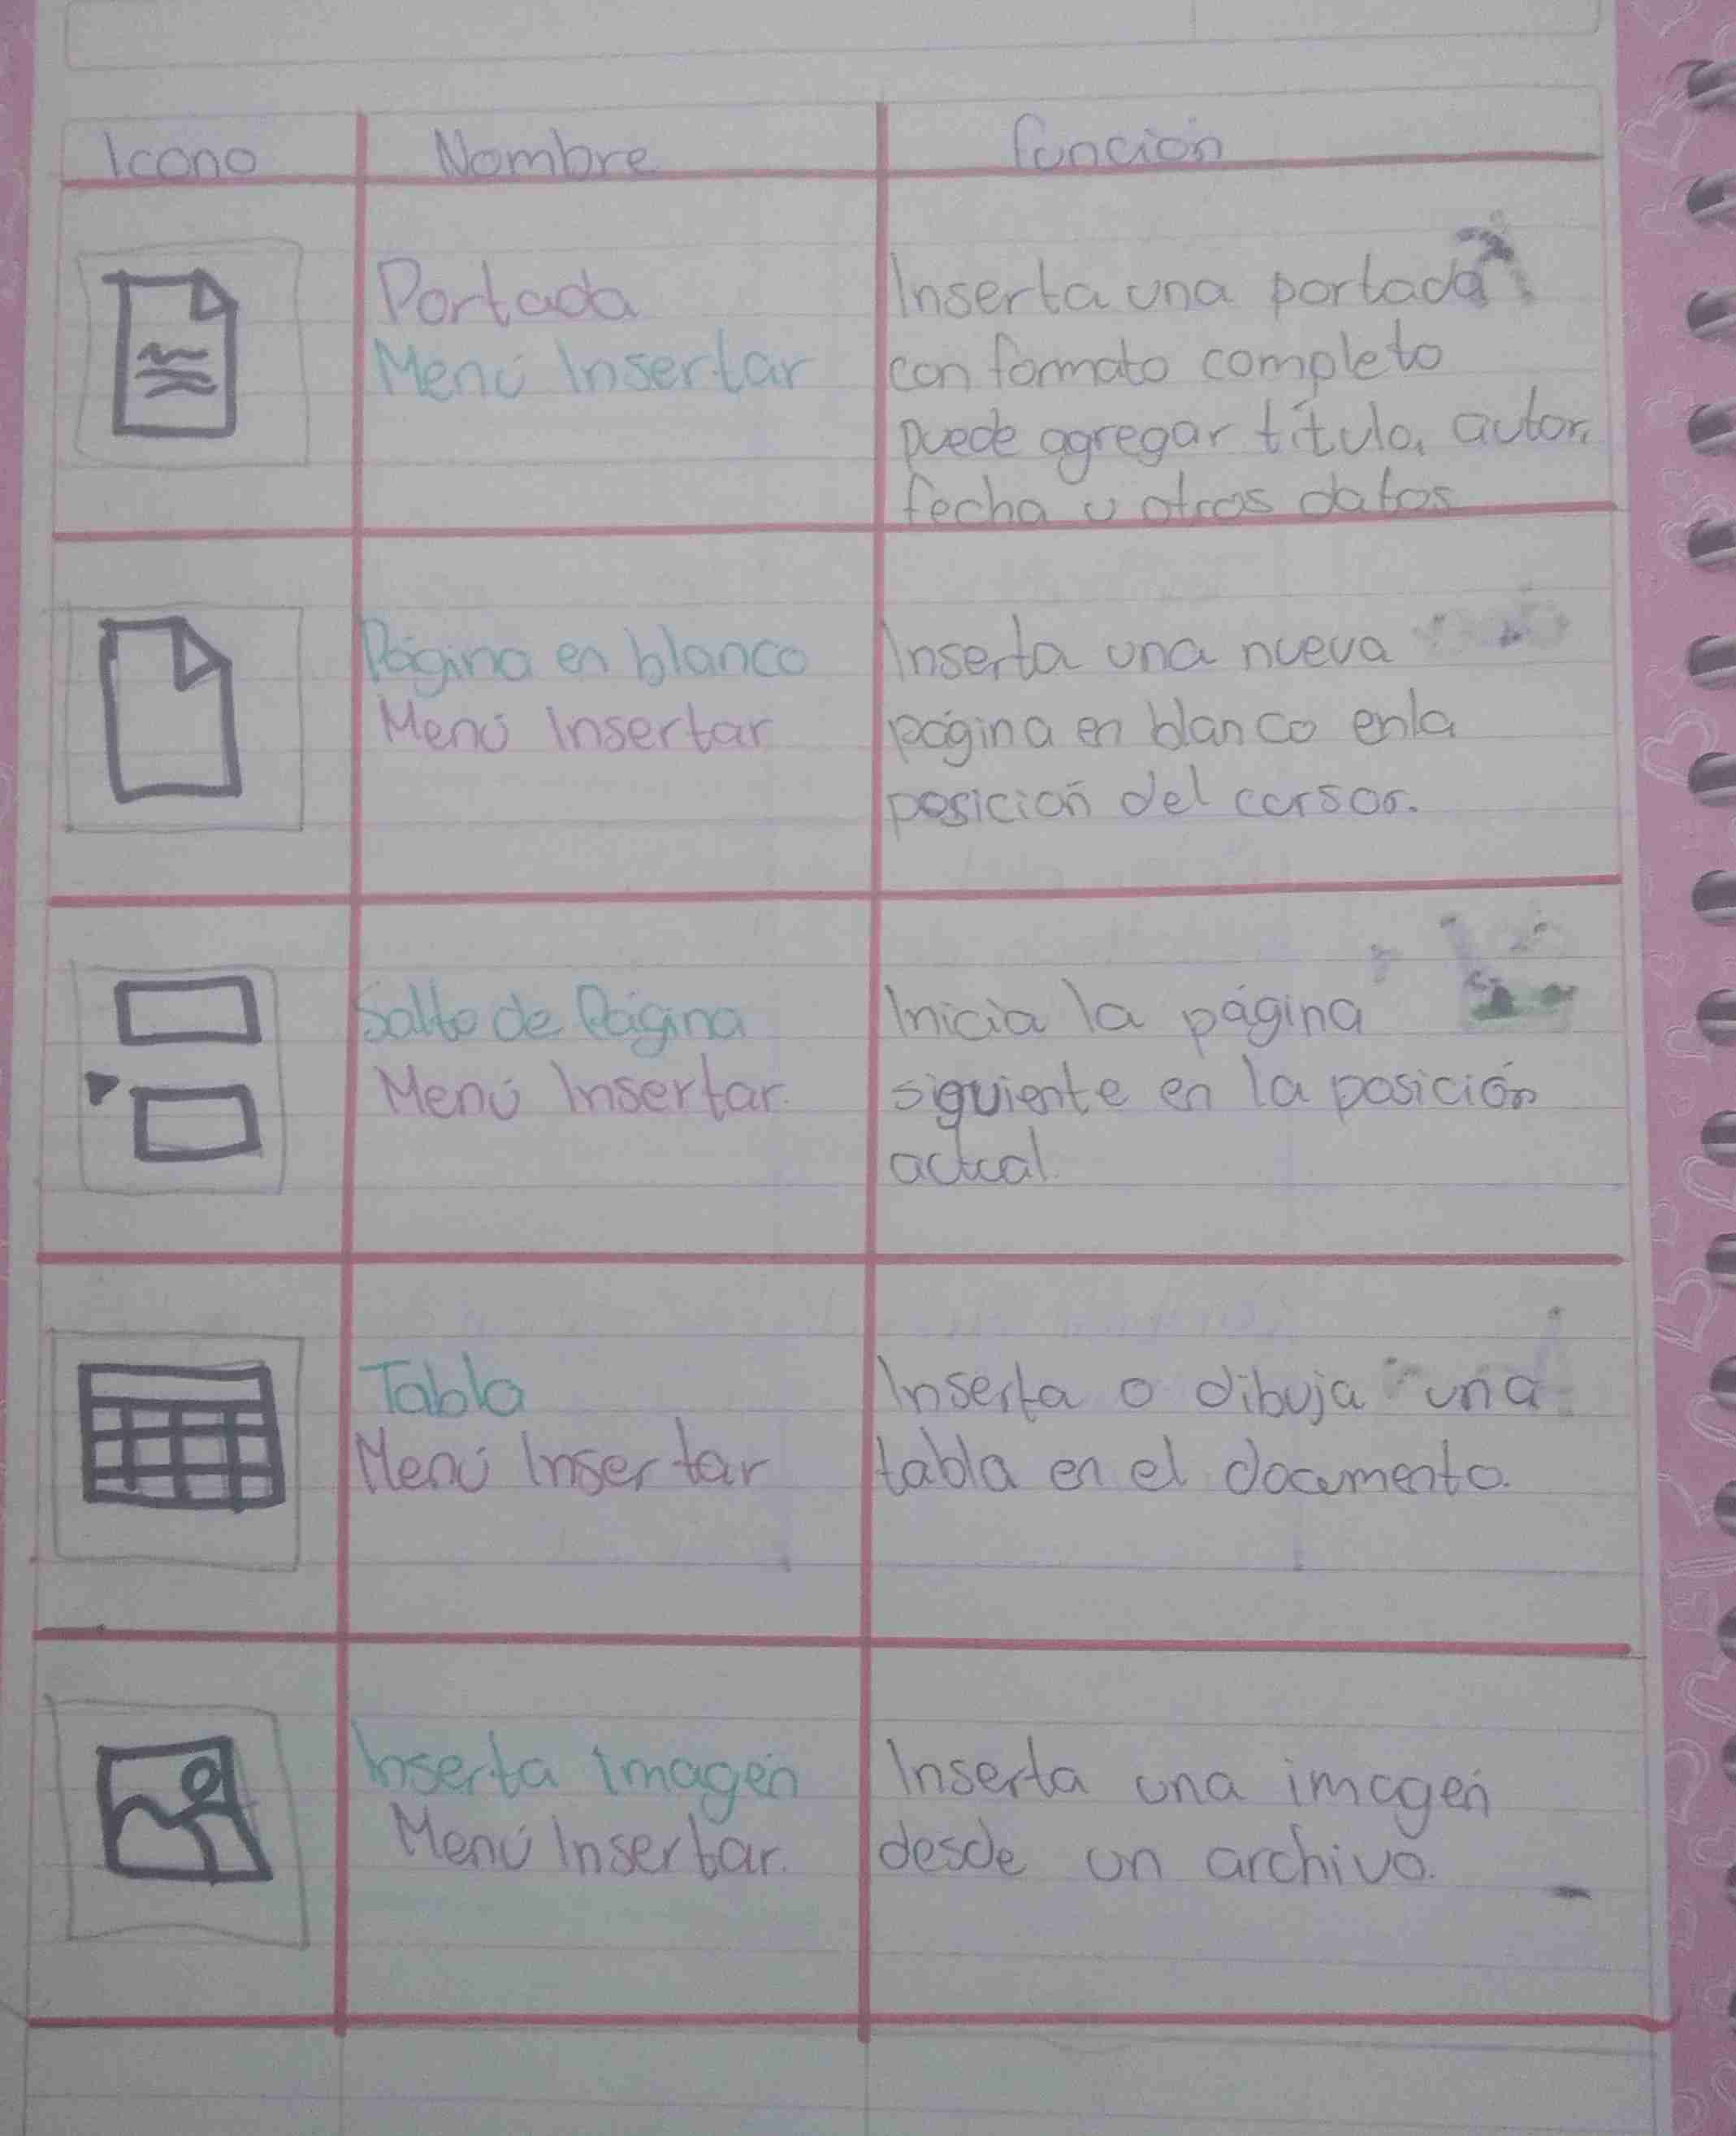 Icono Nombre función
Portada
Menú Insertar
Inserta una portada
con formato completo
puede agregar título, autor,
fecha u otros datos
Página en blanco
Menú Insertar
Inserta una nueva
página en blanco enla
posición del cursor.
Salto de Página
Menú Insertar.
Inicia la página
siguiente en la posición
actual.
Tabla
Menú Insertar
Inserta o dibuja una
tabla en el documento.
Inserta imagen
Menú Insertar.
Inserta una imagen
desde un archivo.